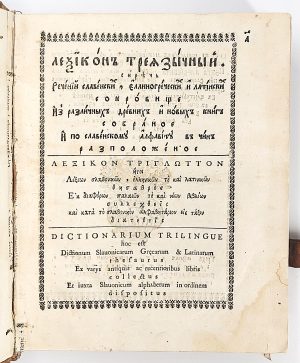 ЛЕѮІКОНЪ ТРЕѦЗЫЧНЫЙ.
СИРѢЧЬ
Реченїй славенскихъ, еллиногреческихъ и латінскихъ
СОКРОВИЩЕ
Из различныхъ древнихъ и новыхъ книгъ
СОБРАНОЕ
И по славенскому алфавіту въ чинъ
РАСПОЛОЖЕНОЕ
ΛΕΞΙΚΟΝ ΤΡΙΓΛΩΤΤΟΝ
ἤτοι
Λέξεων σλαβονικῶν, ἑλληνικῶν τὲ καὶ λατινικῶν
θησαυρὸς
Ἐκ διαφόρων παλαιῶν τὲ καὶ νέων βιβλίων
συλλεχθεὶς
καὶ κατὰ τὸ σλαβονικὸν ἀλφαβητάριον εἰς τάξιν
διατεθείς
DICTIONARIUM TRILINGUE
hoc est
Dictionum Slavonicarum Græcarum & Latinarum
thesaurus
Ex variis antiquis ac recentioribus libris
collectus
Et juxta Slavonicum alphabetum in ordinem
dispositus